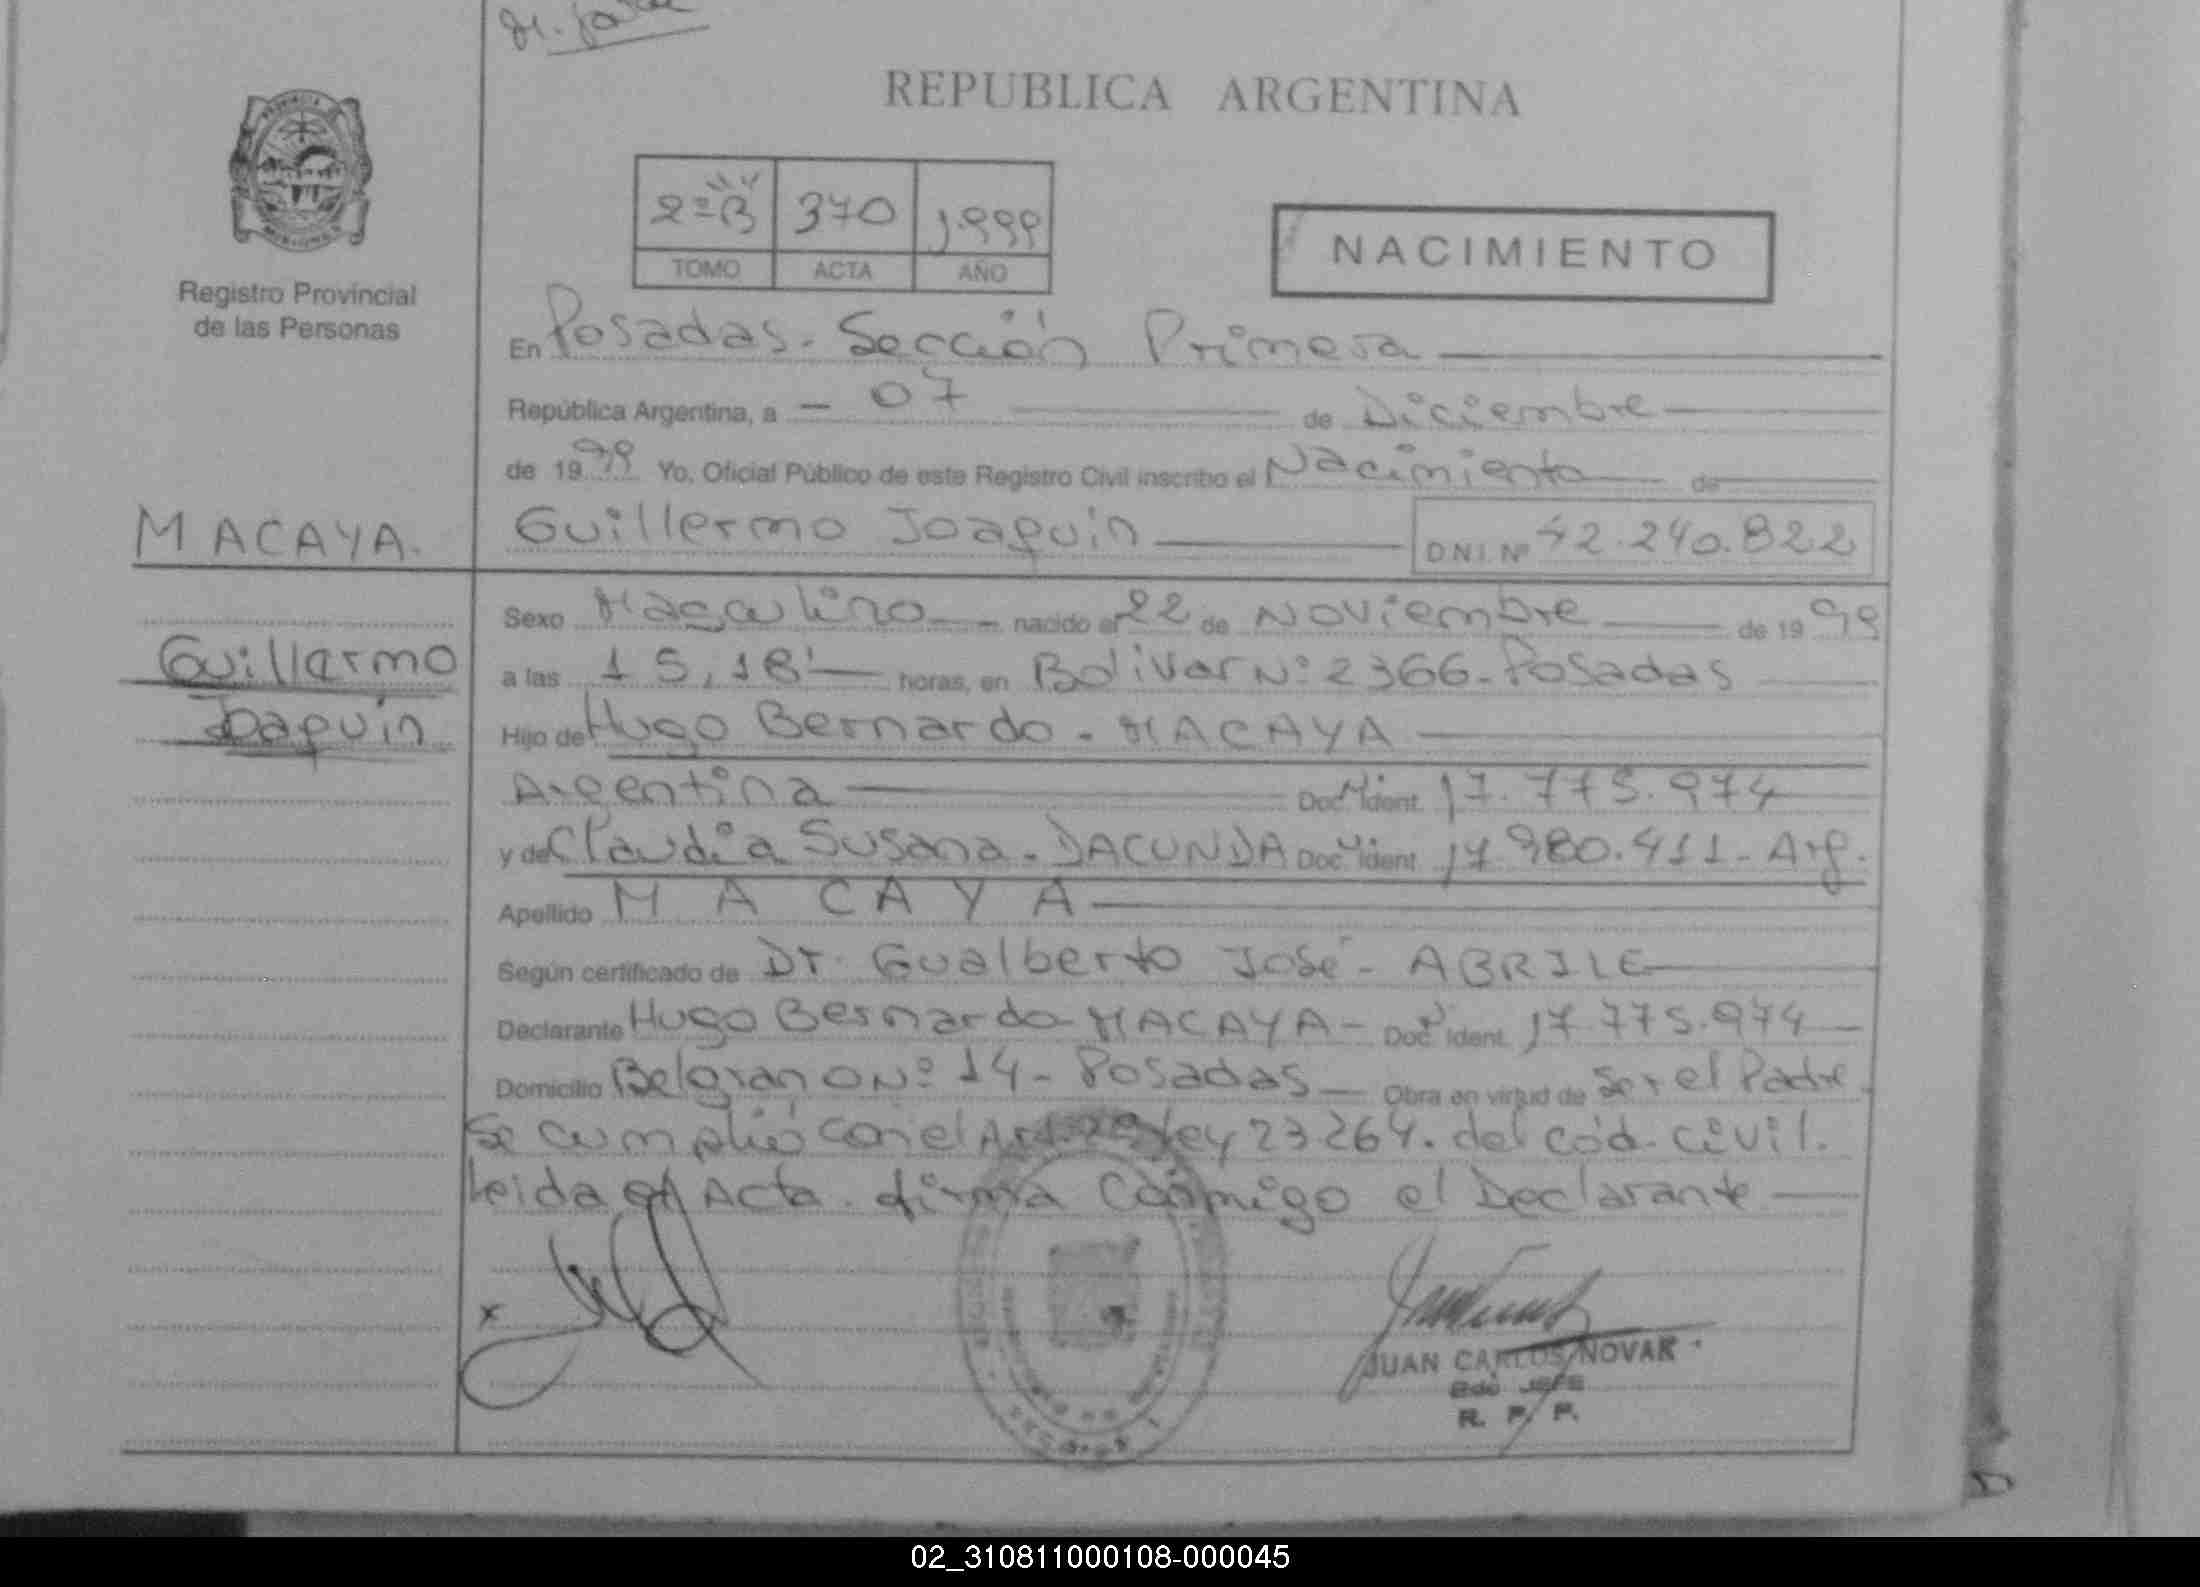 REPUBLICA ARGENTINA
2º "B" 370 1.999
TOMO ACTA AÑO
NACIMIENTO
Registro Provincial
de las Personas
En Posadas. Sección Primera
República Argentina, a - 07 de Diciembre
de 1999 Yo, Oficial Público de este Registro Civil inscribo el Nacimiento de
MACAYA.
Guillermo Joaquín D.N.I. Nº 42.240.822
Guillermo
Joaquín
Sexo Masculino nacido el 22 de Noviembre de 1999
a las 15,18' horas, en Bolivar Nº 2366 - Posadas
Hijo de Hugo Bernardo - MACAYA
Argentina Doc. Ident. 17.775.974
y de Claudia Susana - DACUNDA Doc. Ident. 17.980.411 - Arg.
Apellido MACAYA
Según certificado de Dr. Gualberto José - ABRILE
Declarante Hugo Bernardo - MACAYA - Doc. Ident. 17.775.974
Domicilio Belgrano Nº 14 - Posadas Obra en virtud de Ser el Padre
Se cumplió con el Art. ley 23264. del Cód. Civil.
Leida el Acta. firma Conmigo el Declarante
x
JUAN CARLOS NOVAK
R. P. P.
02_310811000108-000045